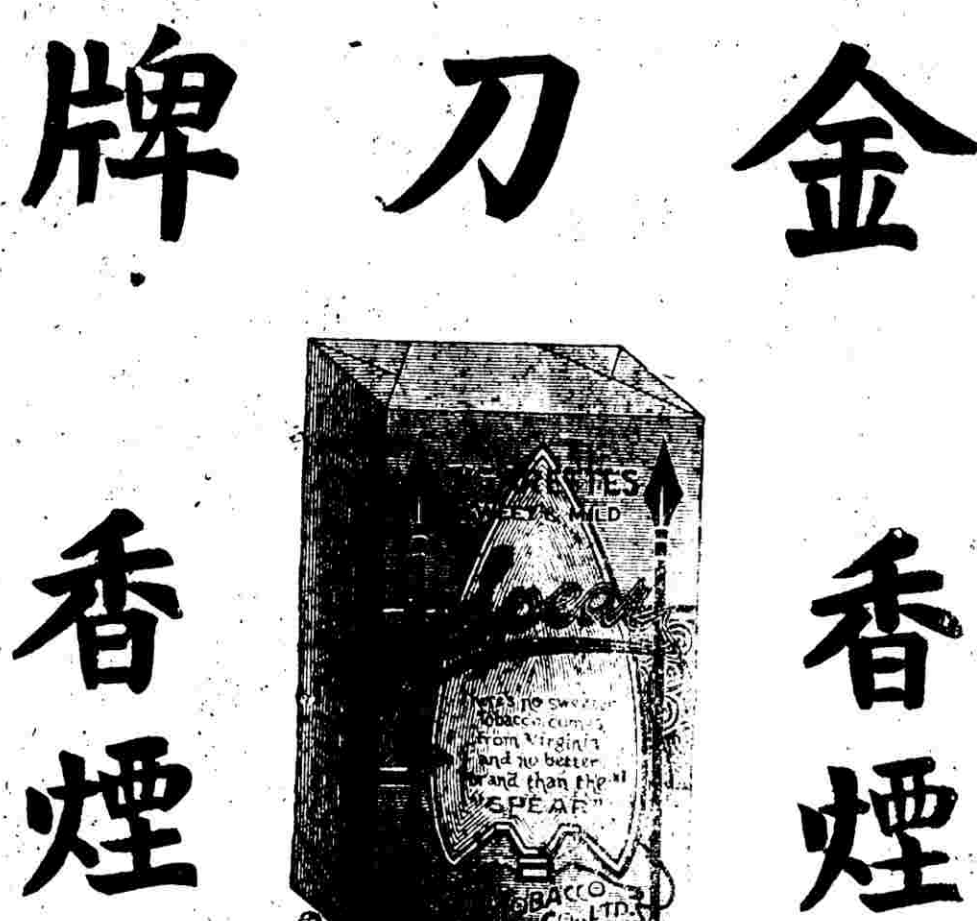 金刀牌
香煙
香煙
SWEET & MILD
Spear
There's no sweeter
Tobacco comes
from Virginia
and no better
brand than the
"SPEAR"
TOBACCO
LTD.